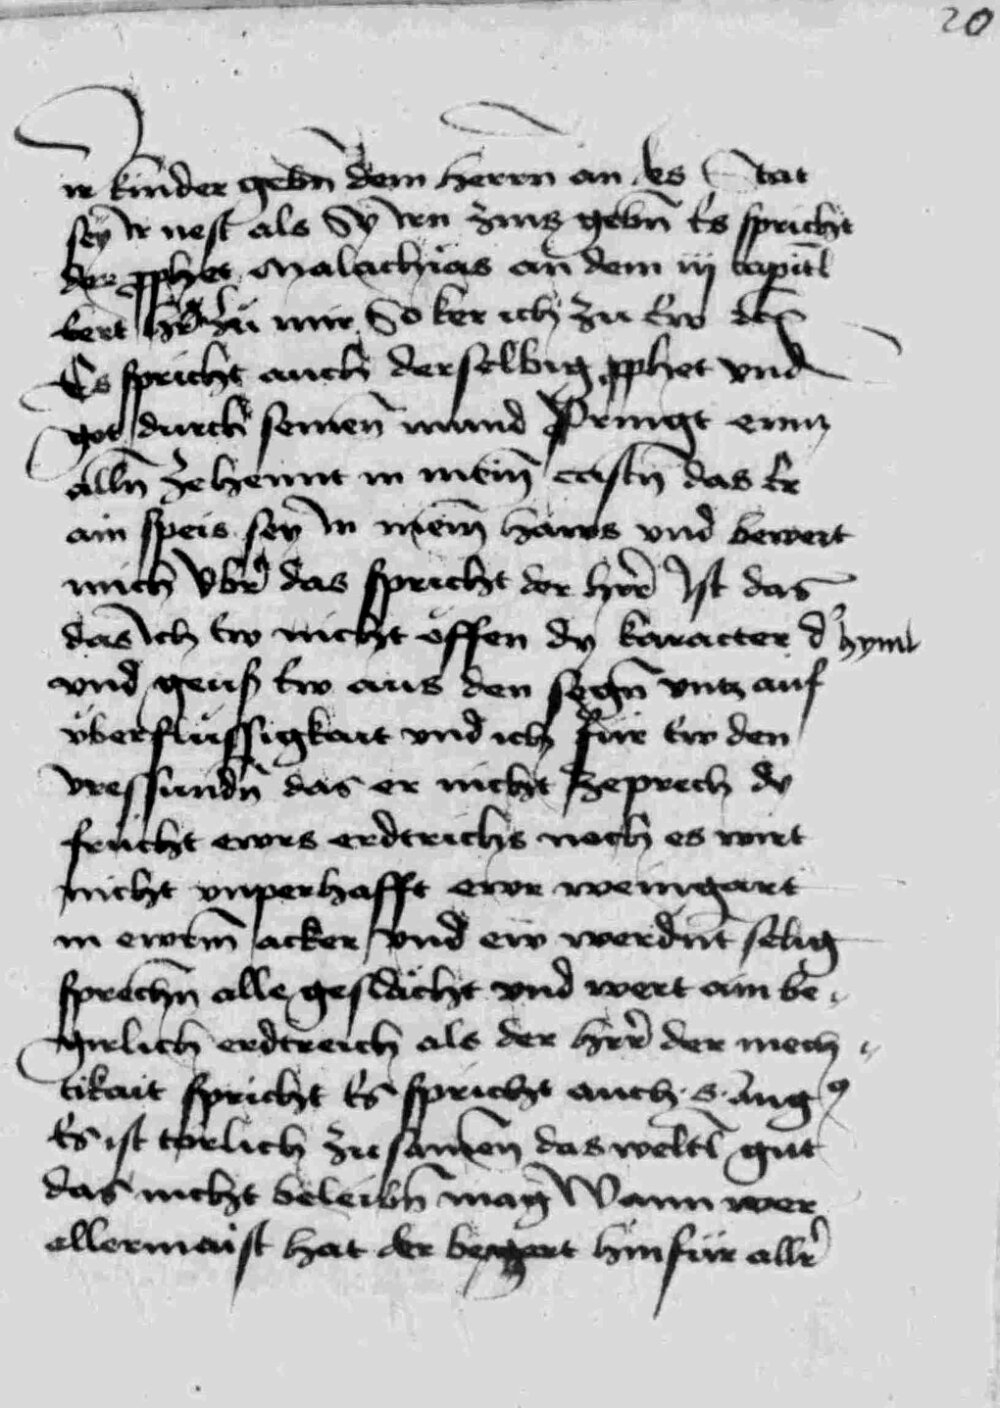 20
ir kinder gebn̄ dem herrn an des stat
sey ir nest als Sy irn zins gebn̄ Es spricht
der pphet Malachias an dem iij capitl
kert zu mir So ker ich zu Ew etc̄
Es spricht auch derselbig pphet vnd
got durch seinen mund Pringt ewrn
alln̄ zehennt in mein̄ castn̄ das Er
ain speis sey in mein̄ haws vnd bewert
mich vbr̄ das spricht der hrr̄ Ist das
das Ich Ew nicht öffen dy karacter d' hyml
vnd geuss Ew aus den segn̄ vntz auf
vberflüssigkait vnd ich für Ew den
vressundn̄ das er nicht zeprech dy
frücht ewrs erdtrichs noch es wirt
nicht vnperhafft ewr weingart
in ewrm̄ acker vnd ew werdn̄t selig
sprechn̄ alle geslächt vnd wert ain be
girlich erdtreich als der hrr̄ der mech
tikait spricht Es spricht auch s. Aug9
Es ist torlich zu samen das weltl̄ gut
das nicht beleibn̄ mag Wann wer
allermaist hat der begert hinfür allr̄